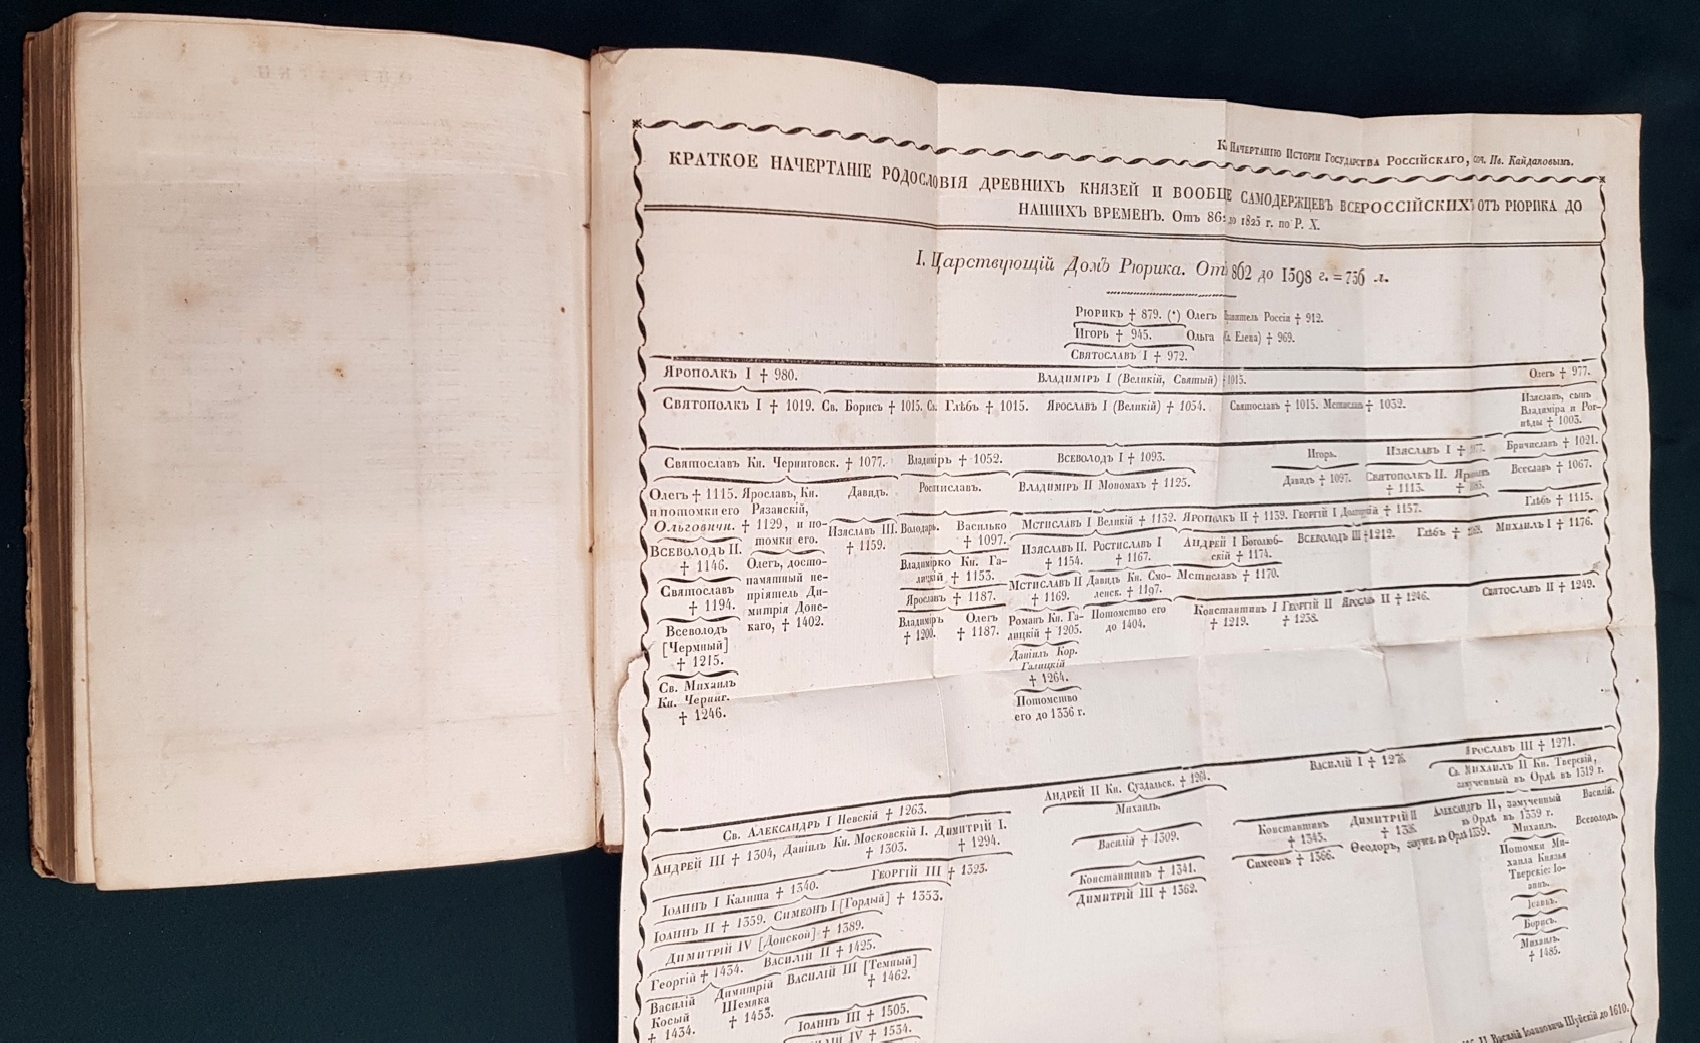 Къ Начертанію Исторіи Государства Россійскаго, соч. Ив. Кайдановымъ.
КРАТКОЕ НАЧЕРТАНІЕ РОДОСЛОВІЯ ДРЕВНИХЪ КНЯЗЕЙ И ВООБЩЕ САМОДЕРЖЦЕВЪ ВСЕРОССІЙСКИХЪ ОТЪ РЮРИКА ДО
НАШИХЪ ВРЕМЕНЪ. Отъ 862 до 1825 г. по Р. Х.
I. Царствующій Домъ Рюрика. Отъ 862 до 1598 г. = 736 л.
Рюрикъ † 879. (*) Олегъ Правитель Россіи † 912.
Игорь † 945. Ольга Елена) † 969.
Святославъ I † 972.
Ярополкъ I † 980. Владиміръ I (Великій, Святый) † 1015. Олегъ † 977.
Святополкъ I † 1019. Св. Борисъ † 1015. Св. Глѣбъ † 1015. Ярославъ I (Великій) † 1054. Святославъ † 1015. Мстиславъ † 1032. Изяславъ, сынъ
Владиміра и Рог-
нѣды † 1003.
Святославъ Кн. Черниговск. † 1077. Владиміръ † 1052. Всеволодъ I † 1093. Игорь. Изяславъ I † Бричиславъ † 1021.
Олегъ † 1115. Ярославъ, Кн. Давидъ. Ростиславъ. Владиміръ II Мономахъ † 1125. Давидъ † 1097. Святополкъ II. Всеславъ † 1067.
† 1113.
и потомки его Рязанскій,
Ольговичи. † 1129, и по- Изяславъ III. Володарь. Василько Мстиславъ I Великій † 1132. Ярополкъ II † 1139. Георгій I † 1157. Глѣбъ † 1115.
томки его. † 1159. † 1097.
Всеволодъ II. Олегъ, досто- Владимірко Кн. Га- Изяславъ II. Ростиславъ I Андрей I Боголюб- Всеволодъ III † 1212. Глѣбъ † Михаилъ I † 1176.
† 1146. памятный не- лицкій † 1153. † 1154. † 1167. скій † 1174.
Святославъ пріятель Ди- Ярославъ † 1187. Мстиславъ II Давидъ Кн. Смо- Мстиславъ † 1170.
† 1194. митрія Донс- † 1169. ленск. † 1197.
Всеволодъ каго, † 1402. Владиміръ Олегъ Романъ Кн. Га- Потомство его Константинъ I Георгій II Ярославъ II † 1246. Святославъ II † 1249.
[Чермный] † 1200. † 1187. лицкій † 1205. до 1404. † 1219. † 1238.
† 1215. Даніилъ Кор.
Галицкій
Св. Михаилъ † 1264.
Кн. Черниг. Потомство
† 1246. его до 1336 г.
Св. Александръ I Невскій † 1263. Андрей II Кн. Суздальск. † 1264. Василій I † Ярославъ III † 1271.
Михаилъ. Св. Михаилъ II Кн. Тверскій,
замученный въ Ордѣ въ 1319 г.
Андрей III † 1304, Даніилъ Кн. Московскій I. Димитрій I. Василій † 1309. Константинъ Димитрій II Александръ II, замученный Василій.
† 1303. † 1294. † 1345. въ Ордѣ въ 1339 г.
Георгій III † 1323. Симеонъ † 1366. Ѳеодоръ, въ Ордѣ 1339. Михаилъ. Всеволодъ.
Іоаннъ I Калита † 1340. Константинъ † 1341. Потомки Ми-
Іоаннъ II † 1359. Симеонъ I [Гордый] † 1353. Димитрій III † 1362. хаила Князья
Димитрій IV [Донской] † 1389. Тверскіе: Іо-
аннъ.
Георгій † 1434. Василій II † 1425. Борисъ.
Василій Димитрій Василій III [Темный] Михаилъ.
Косый Шемяка † 1462. † 1485.
† 1434. † 1453. Іоаннъ III † 1505.
IV † 1534.
Василій Іоанновичь Шуйскій до 1610.